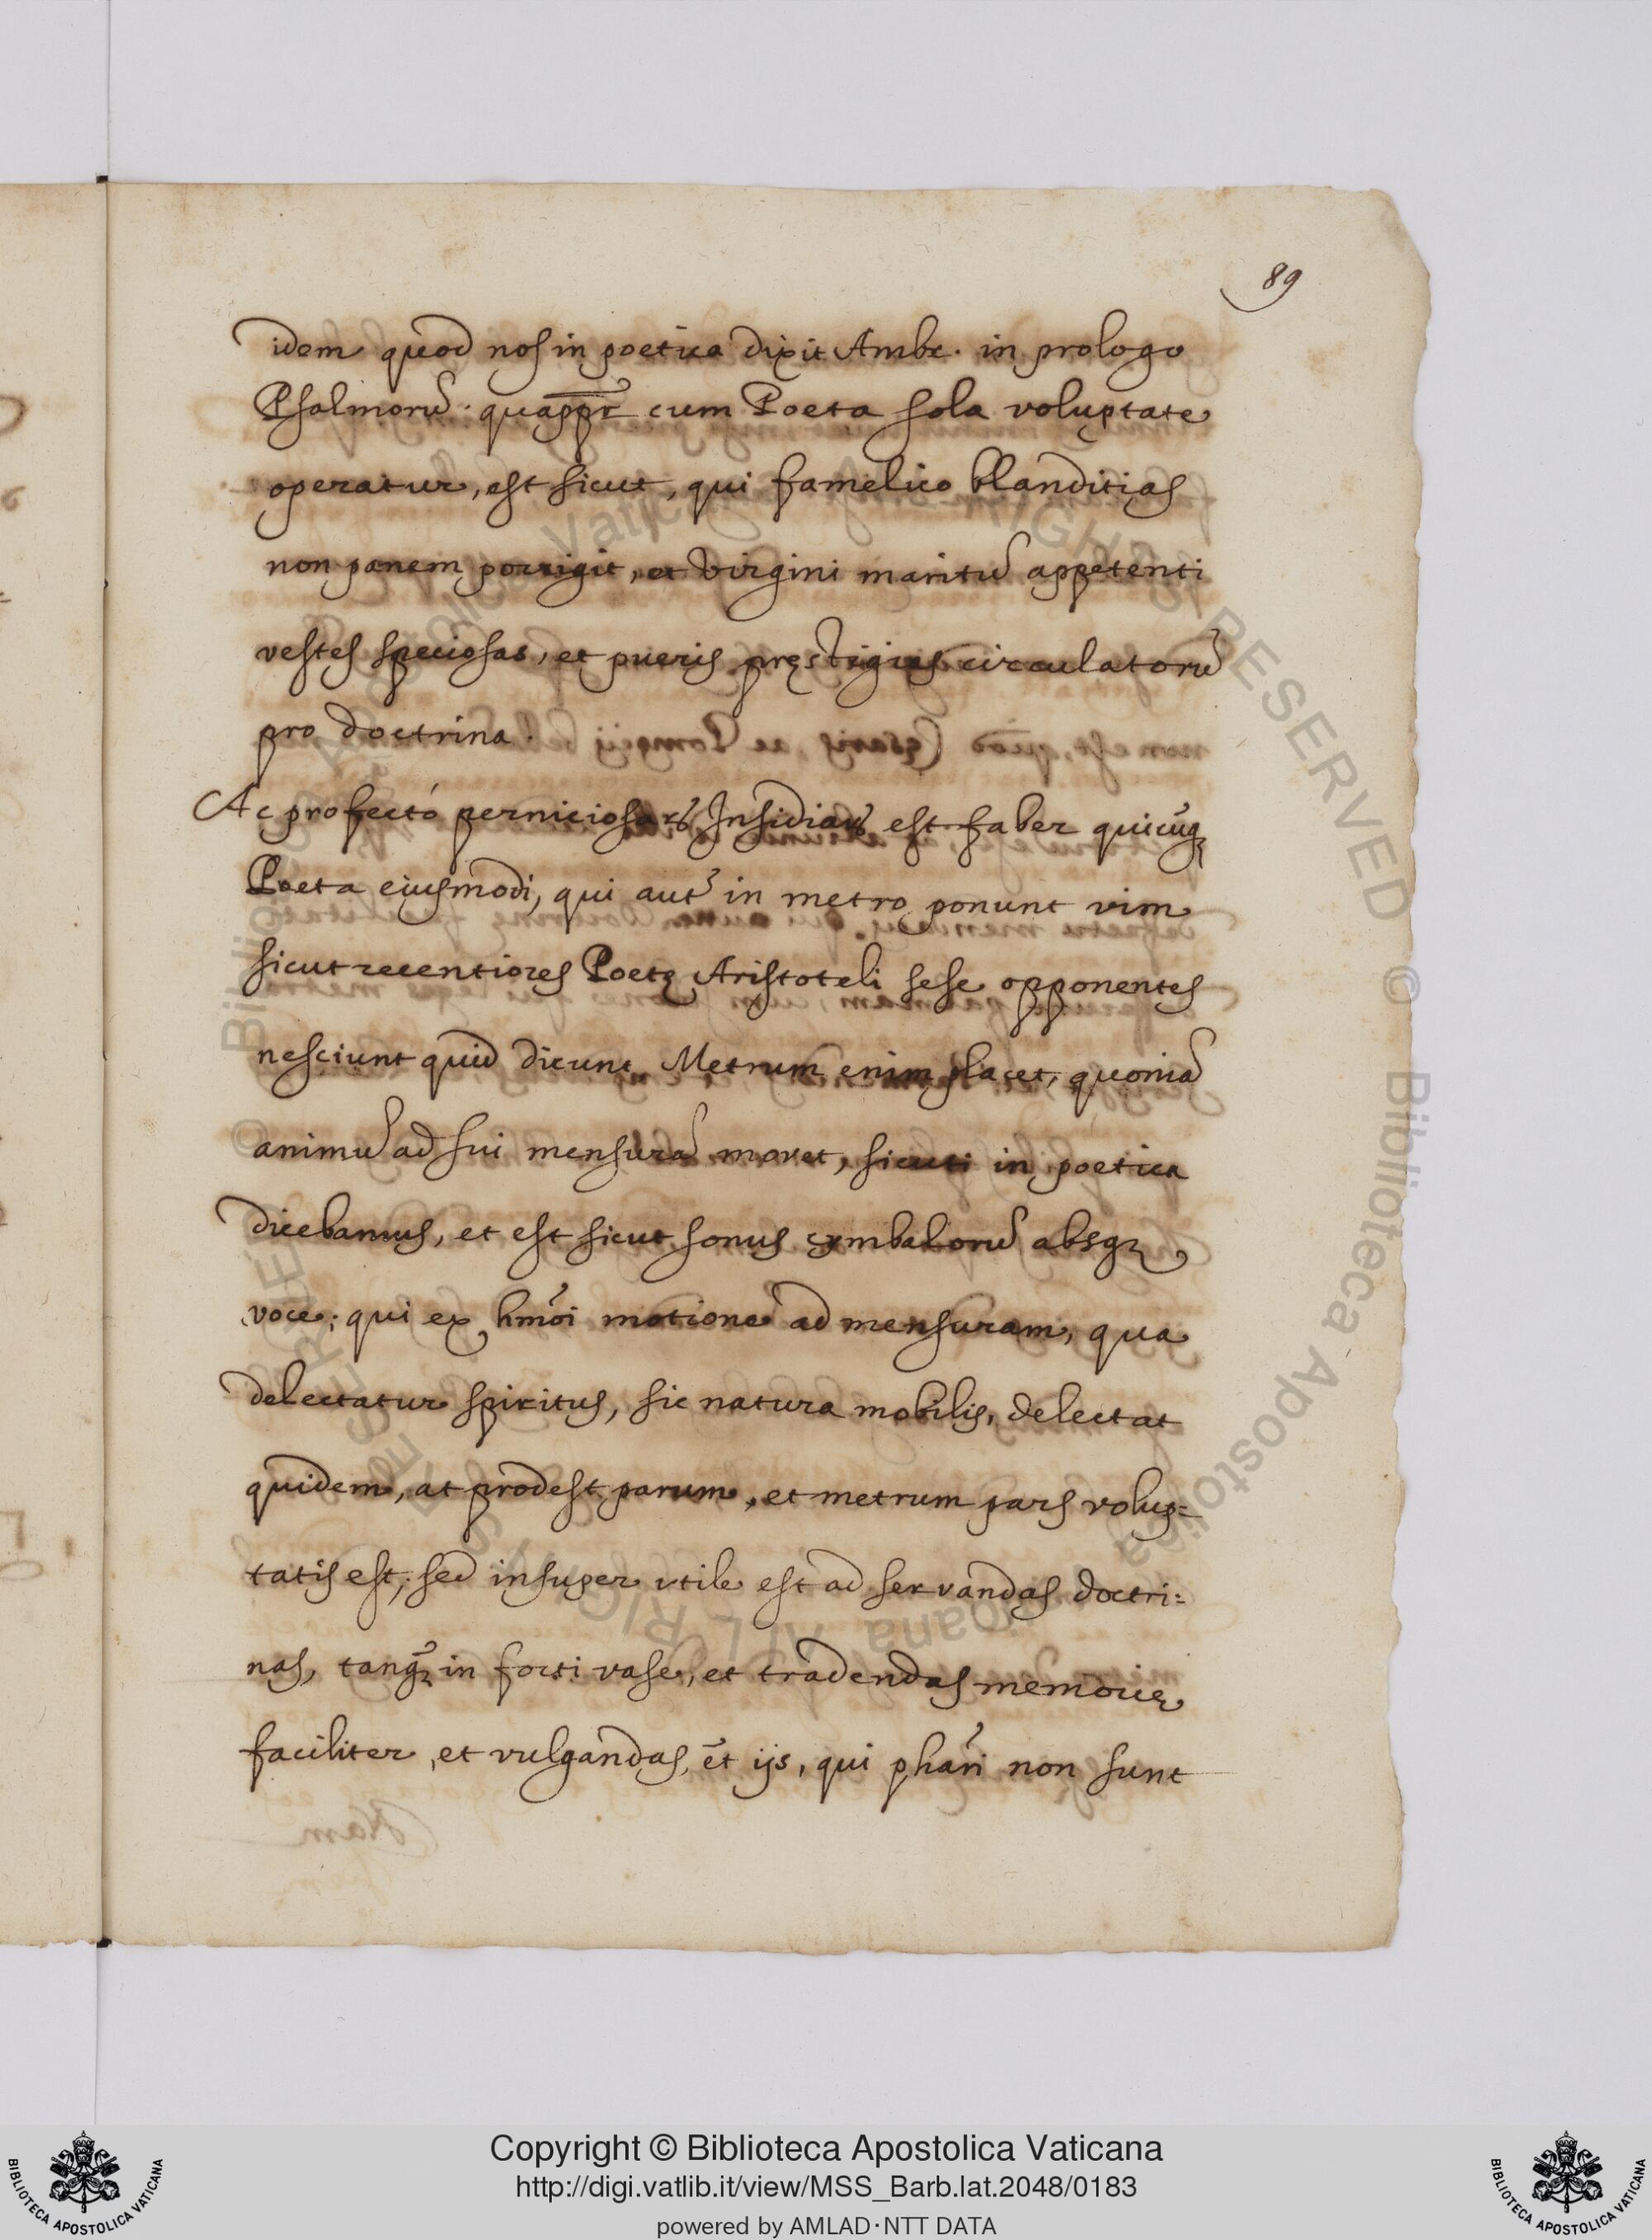 89
idem quod nos in poetica dixit Ambr. in prologo
Psalmorũ. quappr̃ cum Poeta sola voluptate
operatur, est sicut, qui famelico blanditias
non panem porrigit, et Virgini maritũ appetenti
vestes speciosas, et pueris pręstigias circulatorũ
pro doctrina.
Ac profectò perniciosarũ Insidiarũ est faber quicũq
Poeta eiusmodi, qui aut̃ in metro ponunt vim
sicut recentiores Poetę Aristoteli sese opponentes
nesciunt quid dicunt. Metrum enim placet, quoniã
animũ ad sui mensurã movet, sicuti in poetica
dicebamus, et est sicut sonus cymbalorũ absq
voce; qui ex hmõi motione ad mensuram, qua
delectatur spiritus, sic natura mobilis, delectat
quidem, at prodest parum, et metrum pars volup=
tatis est; sed insuper vtile est ad servandas doctri=
nas, tanq̃ in forti vase, et tradendas memorię
faciliter, et vulgandas, ẽt ijs, qui phãri non sunt
© Biblioteca Apostolica Vaticana ALL RIGHTS RESERVED © Biblioteca Apostolica Vaticana ALL RIGHTS RESERVED
BIBLIOTECA APOSTOLICA VATICANA
Copyright © Biblioteca Apostolica Vaticana
http://digi.vatlib.it/view/MSS_Barb.lat.2048/0183
powered by AMLAD·NTT DATA
BIBLIOTECA APOSTOLICA VATICANA